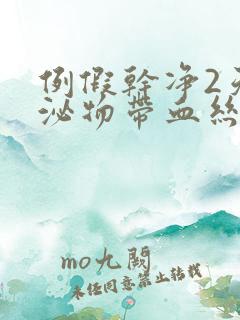 例假幹净2天
泌物帶血絲
mo九閱
未經同意禁止轉載